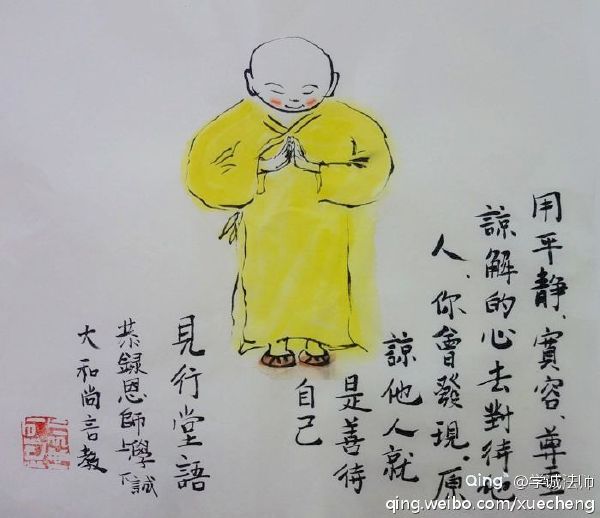 用平靜、寬容、尊重
諒解的心去對待他
人、你會發現,原
諒他人就
是善待
自己
見行堂語
恭錄恩師上學下誠
大和尚言教
Qing @学诚法师
qing.weibo.com/xuecheng